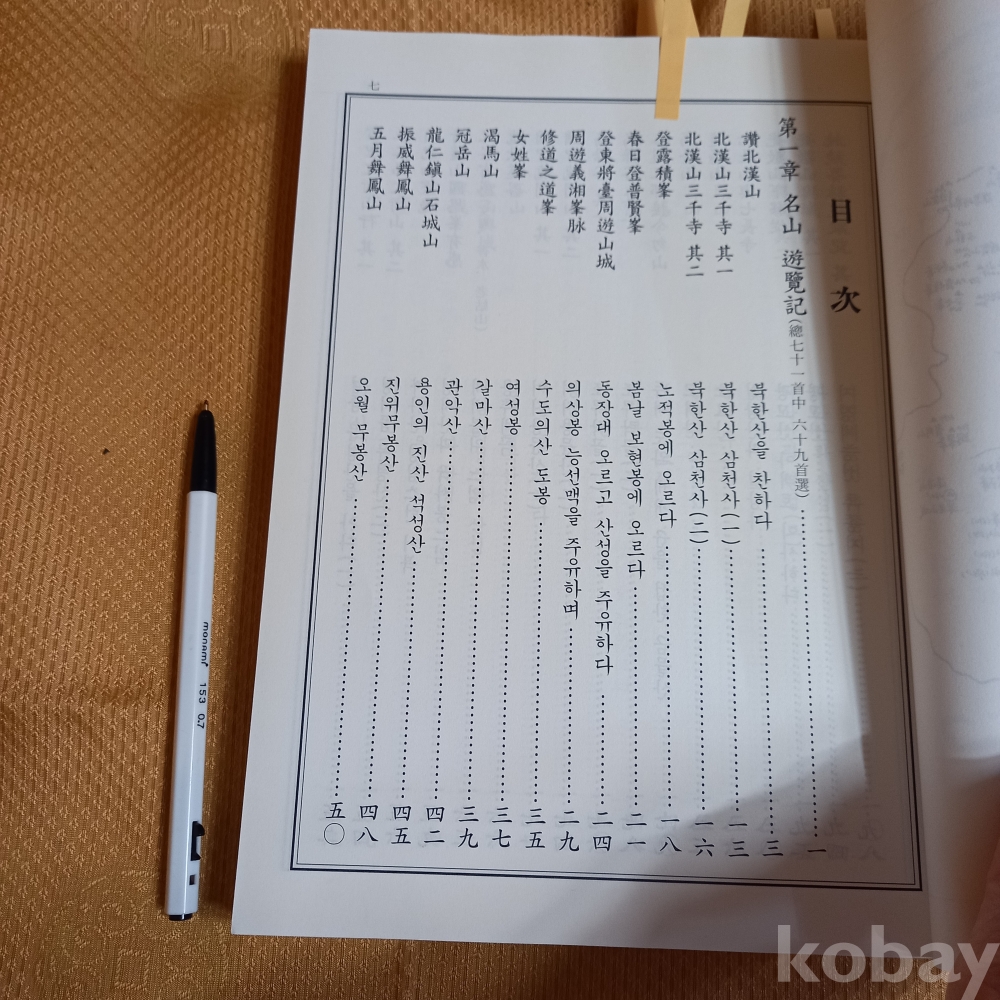 七
目 次
第一章 名山 遊覽記(總七十一首中 六十九首選) …… 一
讚北漢山 북한산을 찬하다 …… 三
北漢山三千寺 其一 북한산 삼천사(一) …… 一三
北漢山三千寺 其二 북한산 삼천사(二) …… 一六
登露積峯 노적봉에 오르다 …… 一八
春日登普賢峯 봄날 보현봉에 오르다 …… 二一
登東將臺周遊山城 동장대 오르고 산성을 주유하다 …… 二四
周遊義湘峯脉 의상봉 능선맥을 주유하며 …… 二九
修道之道峯 수도의산 도봉 …… 三五
女姓峯 여성봉 …… 三七
渴馬山 갈마산 …… 三九
冠岳山 관악산 …… 四二
龍仁鎭山石城山 용인의 진산 석성산 …… 四五
振威舞鳳山 진위무봉산 …… 四八
五月舞鳳山 오월 무봉산 …… 五〇
monami 153 0.7
kobay